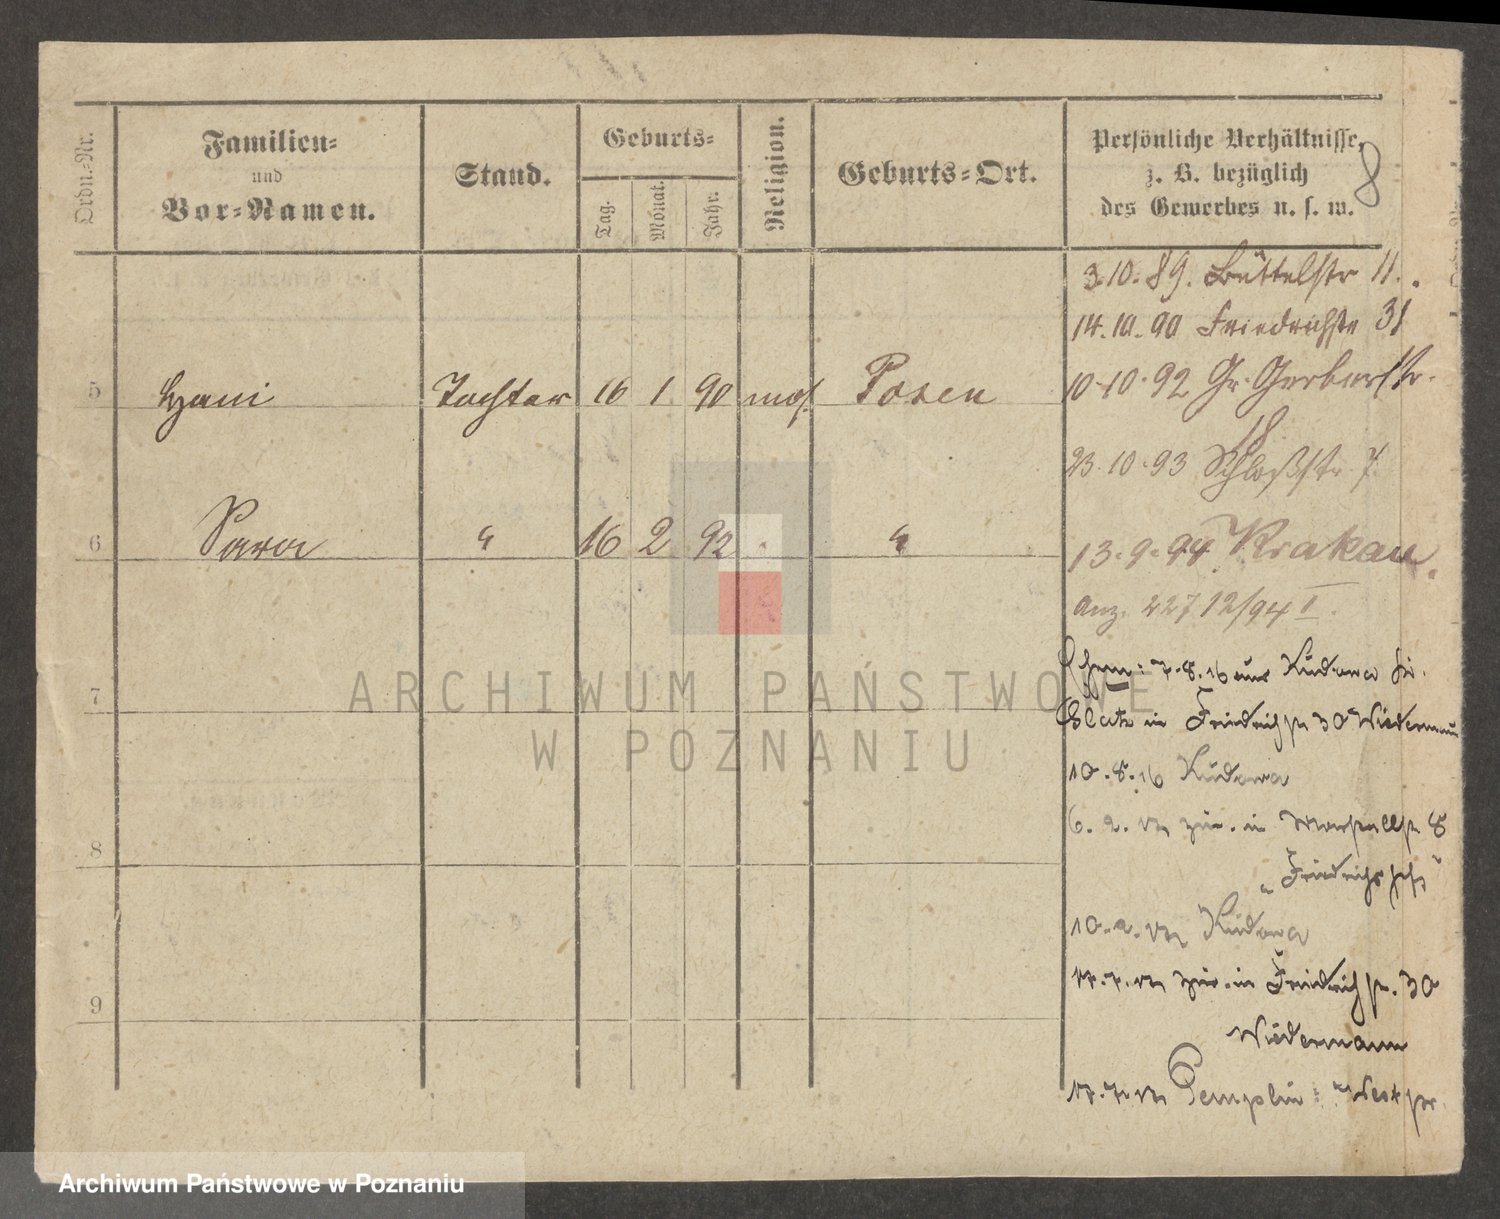 Ordn.-Nr.
Familien-
und
Vor-Namen.
Stand.
Geburts-
Tag.
Monat.
Jahr.
Religion.
Geburts-Ort.
Persönliche Verhältnisse,
z. B. bezüglich
des Gewerbes u. s. w.
8
3.10.89. Büttelstr 11.
14.10.90 Friedrichstr 31
5 Hani Tochter 16 1 90 mos. Posen 10.10.92 Gr. Gerberstr.
18
23.10.93 Schloßstr 7.
6 Sara " 16 2 92 " "
13.9.94. Krakau.
Anz. 22712/94 I.
7.8.16 aus Kudowa Kr.
7 Glatz in Friedrichstr 30 Wiedermann
10.8.16 Kudowa
8 6.2. zur. in 8
" Friedrichs "
10.2. Kudowa
9 zur. in Friedrichstr. 30
Wiedermann
Templin Westpr.
ARCHIWUM PAŃSTWOWE
W POZNANIU
Archiwum Państwowe w Poznaniu